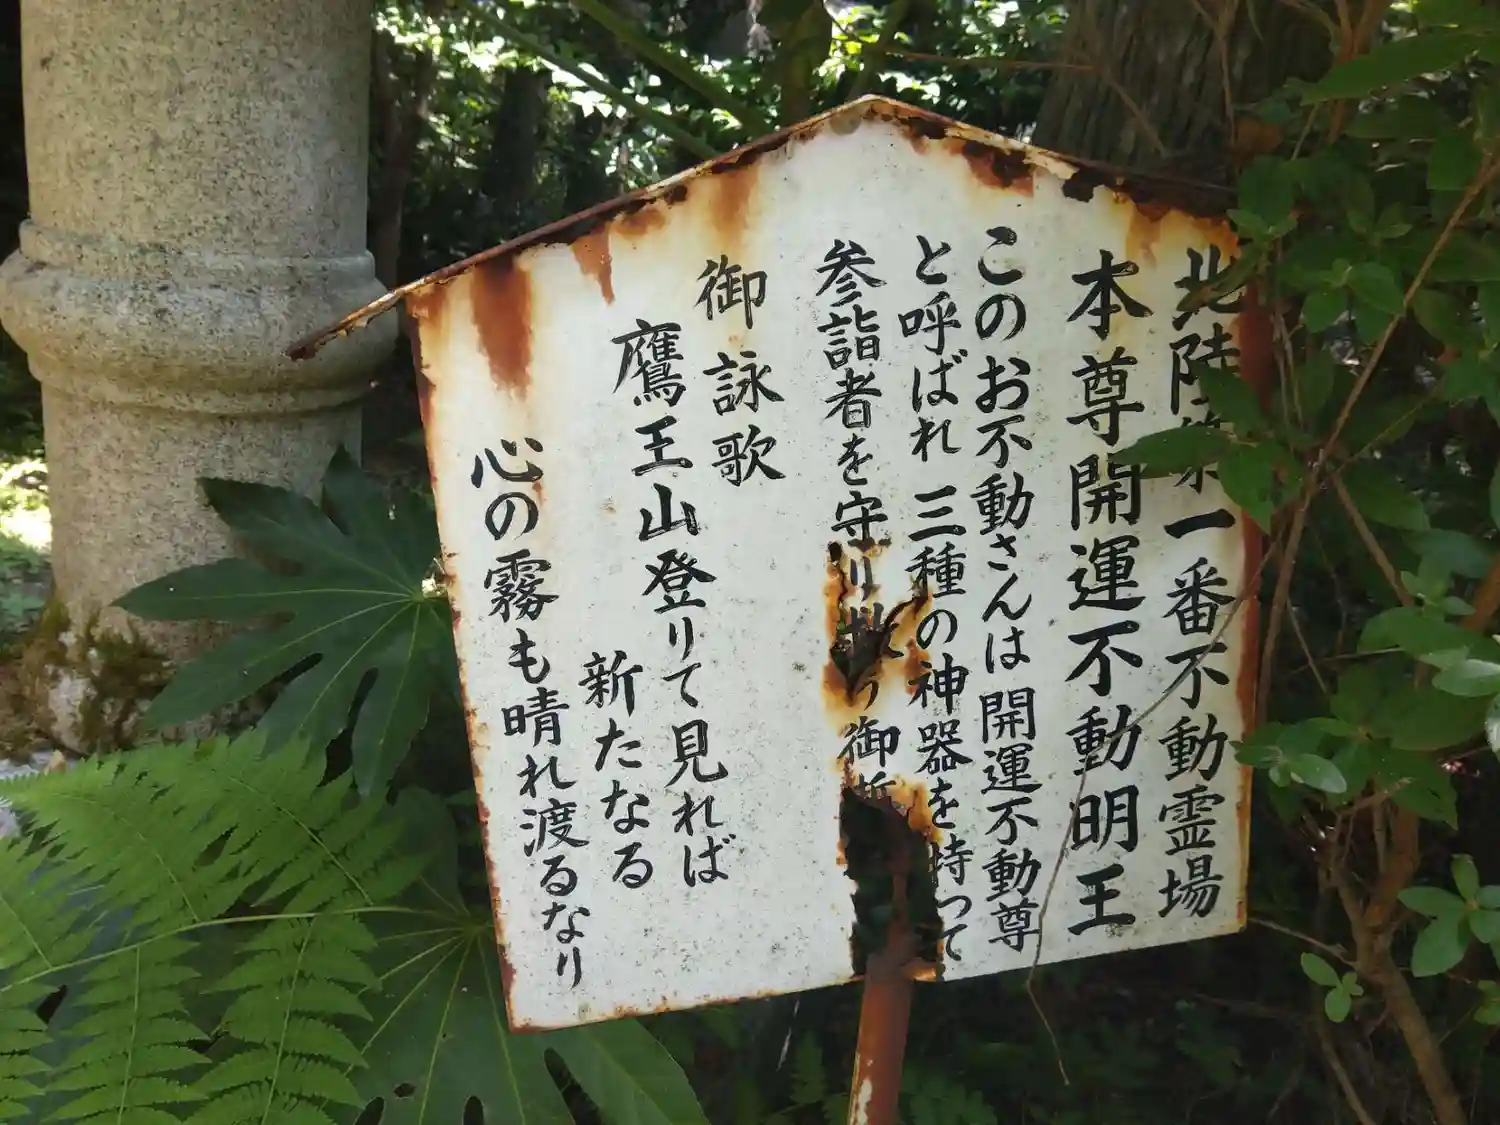 北陸第一番不動霊場
本尊開運不動明王
このお不動さんは開運不動尊
と呼ばれ三種の神器を持って
参詣者を守り救う御
御詠歌
鷹王山登りて見れば
新たなる
心の霧も晴れ渡るなり